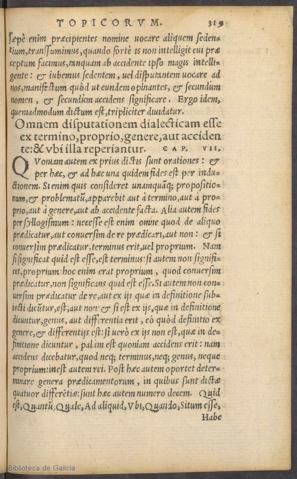 TOPICORVM. 319
sæpè enim præcipientes nomine uocare aliquem seden-
tium, transsumimus, quando fortè is non intelligit cui præ
ceptum facimus, tanquam ab accidente ipso magis intelli-
gente: & iubemus sedentem, uel disputantem uocare ad
nos, manifestum quòd ut eundem opinantes, & secundum
nomen, & secundum accidens significare. Ergo idem,
quemadmodum dictum est, tripliciter diuidatur.
Omnem disputationem dialecticam esse
ex termino, proprio, genere, aut acciden
te: & vbi illa reperiantur. CAP. VII.
QVoniam autem ex prius dictis sunt orationes: & 
per hæc, & ad hæc una quidem fides est per indu-
ctionem. Si enim quis consideret unamquāq; propositio-
num, & problematū, apparebit aut à termino, aut à pro-
prio, aut à genere, aut ab accidente facta. Alia autem fides
per syllogismum: necesse est enim omne quod de aliquo
prædicatur, aut conuersim de re prædicari, aut non: & si
conuersim prædicatur, terminus erit, uel proprium. Nam
si significat quid est esse, est terminus: si autem non signifi-
cat, proprium: hoc enim erat proprium, quod conuersim
prædicatur, non significans quid est esse. Si autem non con-
uersim prædicatur de re, aut ex ijs quæ in definitione sub-
iecti dicūtur, est, aut non: & si est ex ijs, quæ in definitione
dicuntur, genus, aut differentia erit, eò quòd definitio ex
genere, & differentijs est: si uerò ex ijs non est, quæ in de-
finitione dicuntur, palàm est quoniam accidens erit: nam
accidens dicebatur, quod neq; terminus, neq; genus, neque
proprium: inest autem rei. Post hæc autem oportet deter-
minare genera prædicamentorum, in quibus sunt dictæ
quatuor differētiæ: sunt hæc autem numero decem. Quid
est, Quantū, Quale, Ad aliquid, Vbi, Quando, Situm esse,
Habe
Biblioteca de Galicia